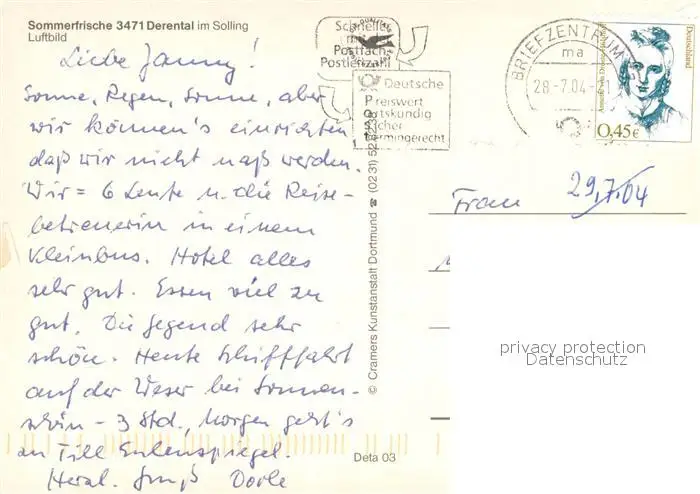 Sommerfrische 3471 Derental im Solling
Luftbild
Liebe Janny!
Sonne, Regen, Sonne, aber
wir können's einrichten
daß wir nicht naß werden.
Wir = 6 Leute u. die Reise-
betreuerin in einem
Kleinbus. Hotel alles
sehr gut. Essen viel zu
gut. Die Gegend sehr
schön. Heute Schifffahrt
auf der Weser bei Sonnen-
schein - 3 Std., Morgen geht's
zu Till Eulenspiegel.
Herzl. Gruß Dorle
Schneller
mit der
Postfach-
Postleitzahl
Deutsche
Preiswert
Ortskundig
Sicher
termingerecht
BRIEFZENTRUM
ma
28.-7.04
Deutschland
0,45€
© Cramers Kunstanstalt Dortmund ☎ (0231)
Deta 03
Frau
29.7.04
privacy protection
Datenschutz